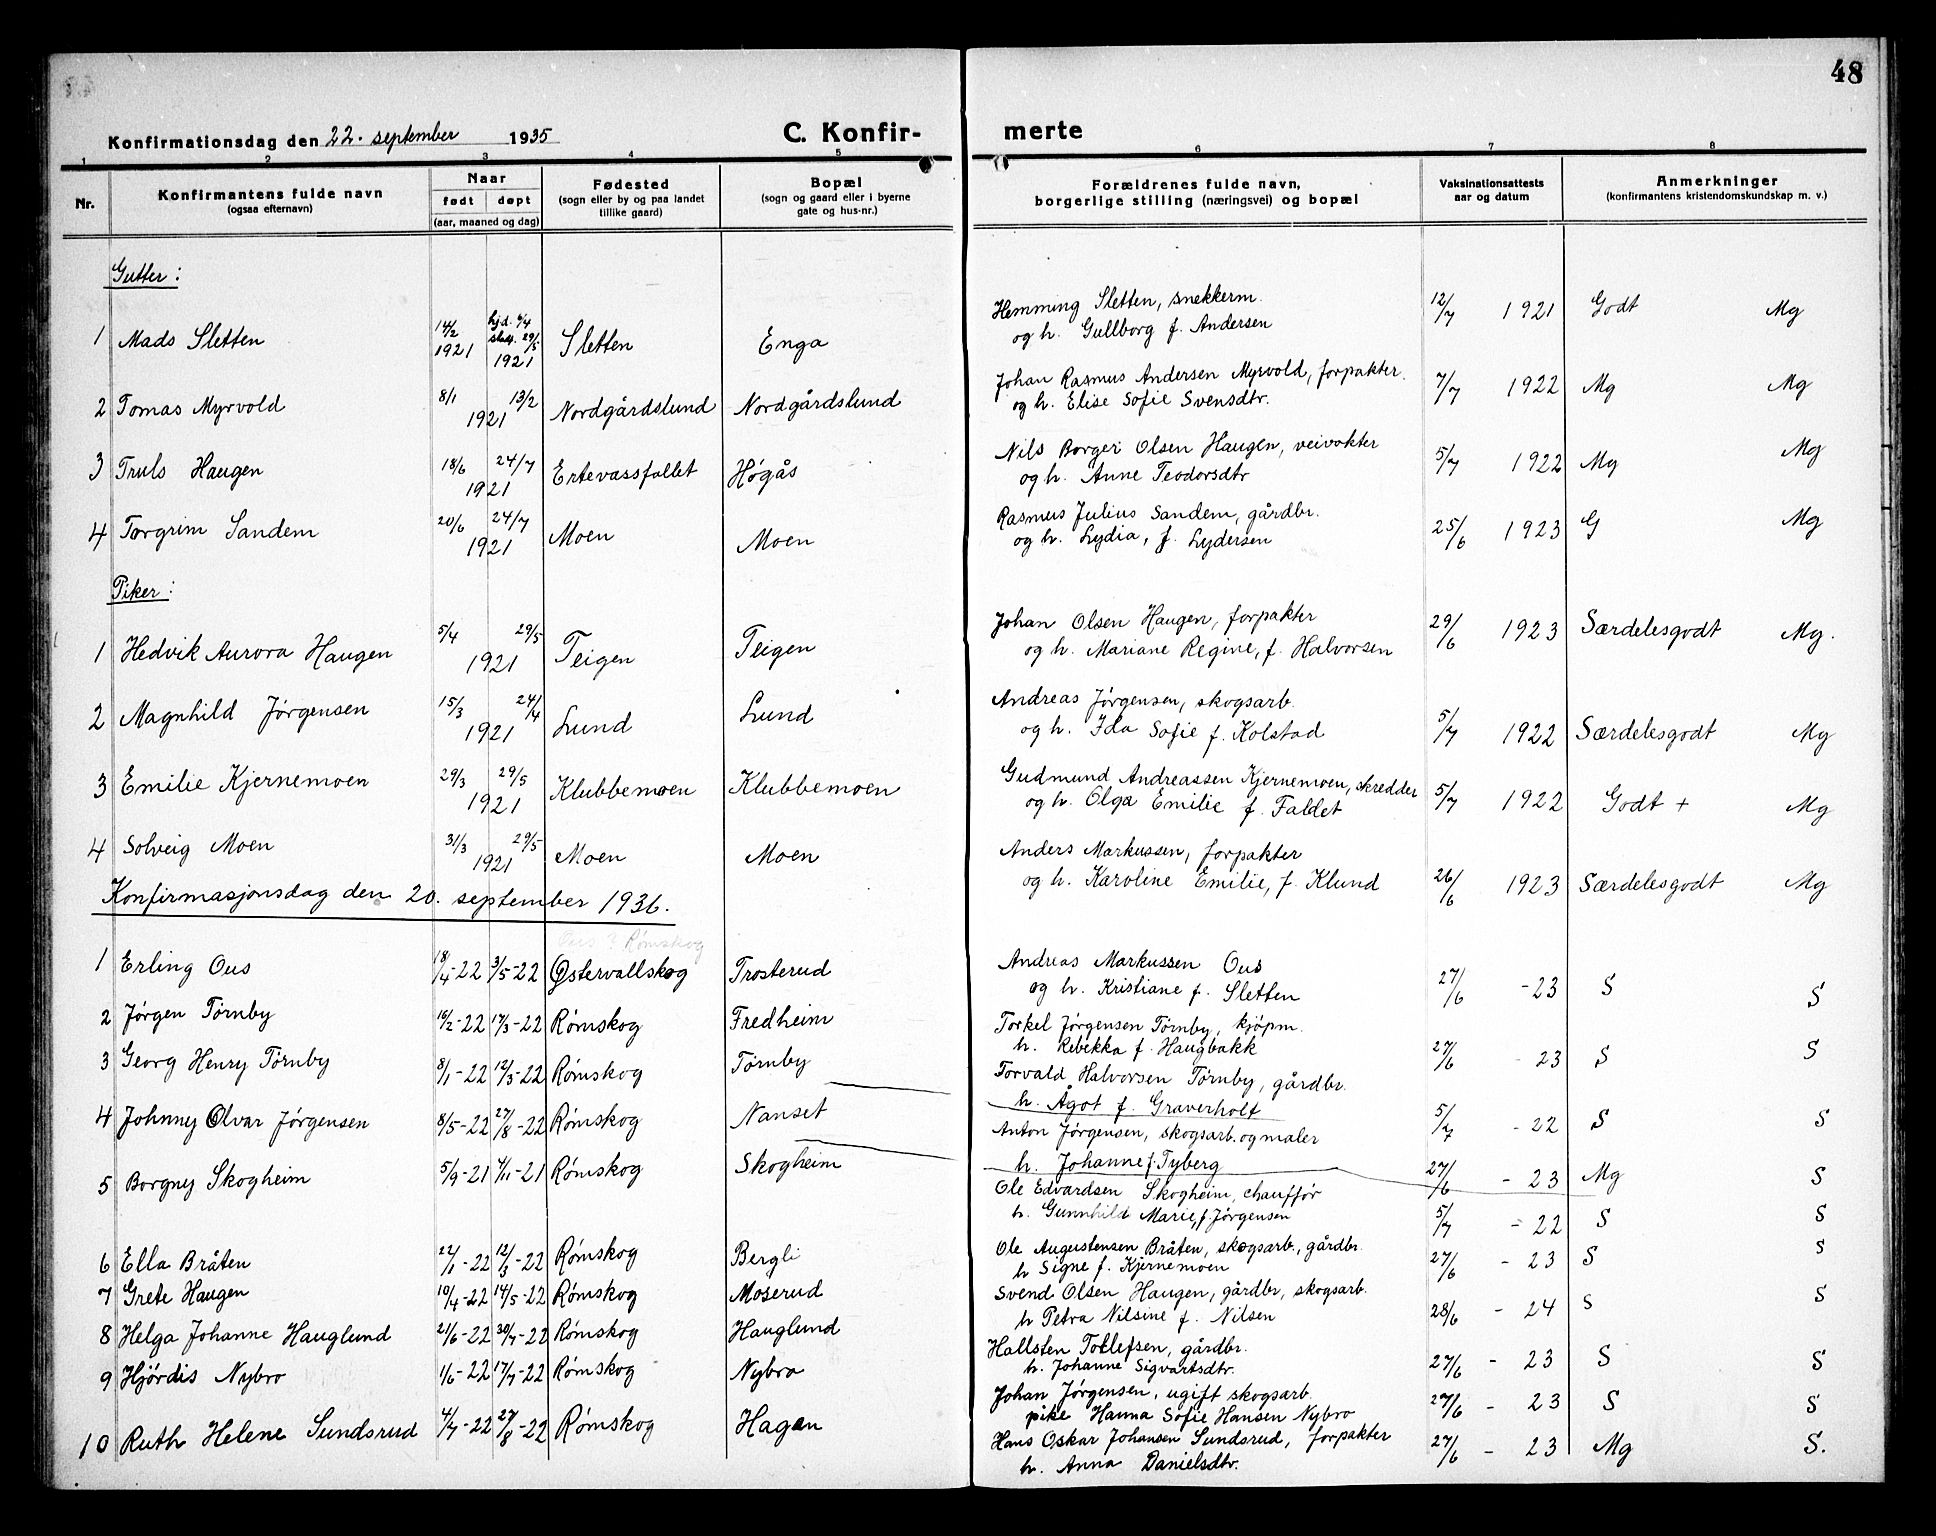 48
Konfirmationsdag den 22. september 1935 C. Konfir- merte
1 2 3 4 5 6 7 8
Nr. Konfirmantens fulde navn (ogsaa efternavn) Naar født døpt (aar, maaned og dag) Fødested (sogn eller by og paa landet tillike gaard) Bopæl (sogn og gaard eller i byerne gate og hus-nr.) Forældrenes fulde navn, borgerlige stilling (næringsvei) og bopæl Vaksinationsattests aar og datum Anmerkninger (konfirmantens kristendomskundskap m. v.)
Gutter:
1 Mads Sletten 14/2 1921 hjd. 4/4 stadf. 29/5 1921 Sletten Enga Hemming Sletten, snekkerm. 12/7 1921 Godt Mg
og h. Gullborg f. Andersen
2 Tomas Myrvold 8/1 13/2 1921 Nordgårdslund Nordgårdslund Johan Rasmus Andersen Myrvold, forpakter. 7/7 1922 Mg Mg
og h. Elise Sofie Svensdtr.
3 Truls Haugen 18/6 24/7 1921 Ertevassfallet Høgås Nils Borger Olsen Haugen, veivokter 5/7 1922 Mg Mg
og h. Anne Teodorsdtr
4 Torgrim Sandem 20/6 24/7 1921 Moen Moen Rasmus Julius Sandem, gårdbr. 25/6 1923 G Mg
og h. Lydia, f. Lydersen
Piker:
1 Hedvik Aurora Haugen 5/4 29/5 1921 Teigen Teigen Johan Olsen Haugen, forpakter 29/6 1923 Særdelesgodt Mg.
og h. Mariane Regine, f. Halvorsen
2 Magnhild Jørgensen 15/3 24/4 1921 Lund Lund Andreas Jørgensen, skogsarb. 5/7 1922 Særdelesgodt Mg
og h. Ida Sofie f. Kolstad
3 Emilie Kjernemoen 29/3 29/5 1921 Klubbemoen Klubbemoen Gudmund Andreassen Kjernemoen, skredder 5/7 1922 Godt + Mg
og h. Olga Emilie f. Faldet
4 Solveig Moen 31/3 29/5 1921 Moen Moen Anders Markussen, forpakter 26/6 1923 Særdelesgodt Mg
og h. Karoline Emilie, f. Klund
Konfirmasjonsdag den 20. september 1936.
Ous i Rømskog
1 Erling Ous 18/4-22 3/5-22 Østervallskog Trosterud Andreas Markussen Ous 27/6 -23 S S
og h. Kristiane f. Sletten
2 Jørgen Tørnby 16/2-22 17/3-22 Rømskog Fredheim Torkel Jørgensen Tørnby, kjøpm. 27/6 - 23 S S
h. Rebekka f. Haugbakk
3 Georg Henry Tørnby 8/1-22 12/3-22 Rømskog Tørnby Torvald Halvorsen Tørnby, gårdbr. 5/7 - 22 S S
h. Ågot f. Graverholt
4 Johnny Olvar Jørgensen 8/5-22 27/8-22 Rømskog Nanset Anton Jørgensen, skogsarb. og maler 27/6 - 23 Mg S
h. Johanne f. Tyberg
5 Borgny Skogheim 5/9-21 4/11-21 Rømskog Skogheim Ole Edvardsen Skogheim, chauffør 5/7 - 22 S S
h. Gunnhild Marie, f. Jørgensen
6 Ella Bråten 22/1-22 12/3-22 Rømskog Bergli Ole Augustensen Bråten, skogsarb., gårdbr. 27/6 - 23 S S
h Signe f. Kjernemoen
7 Grete Haugen 10/4-22 14/5-22 Rømskog Moserud Svend Olsen Haugen, gårdbr, skogsarb. 28/6 - 24 S S
h Petra Nilsine f. Nilsen
8 Helga Johanne Hauglund 21/6-22 30/7-22 Rømskog Hauglund Hallsten Tollefsen, gårdbr. 27/6 - 23 S S
h. Johanne Sigvartsdtr.
9 Hjørdis Nybro 1/6-22 17/7-22 Rømskog Nybro Johan Jørgensen, ugift skogsarb. 27/6 - 23 S S
pike Hanna Sofie Hansen Nybro
10 Ruth Helene Sundsrud 4/7-22 27/8-22 Rømskog Hagen Hans Oskar Johansen Sundsrud, forpakter 27/6 - 23 Mg S.
h. Anna Danielsdtr.